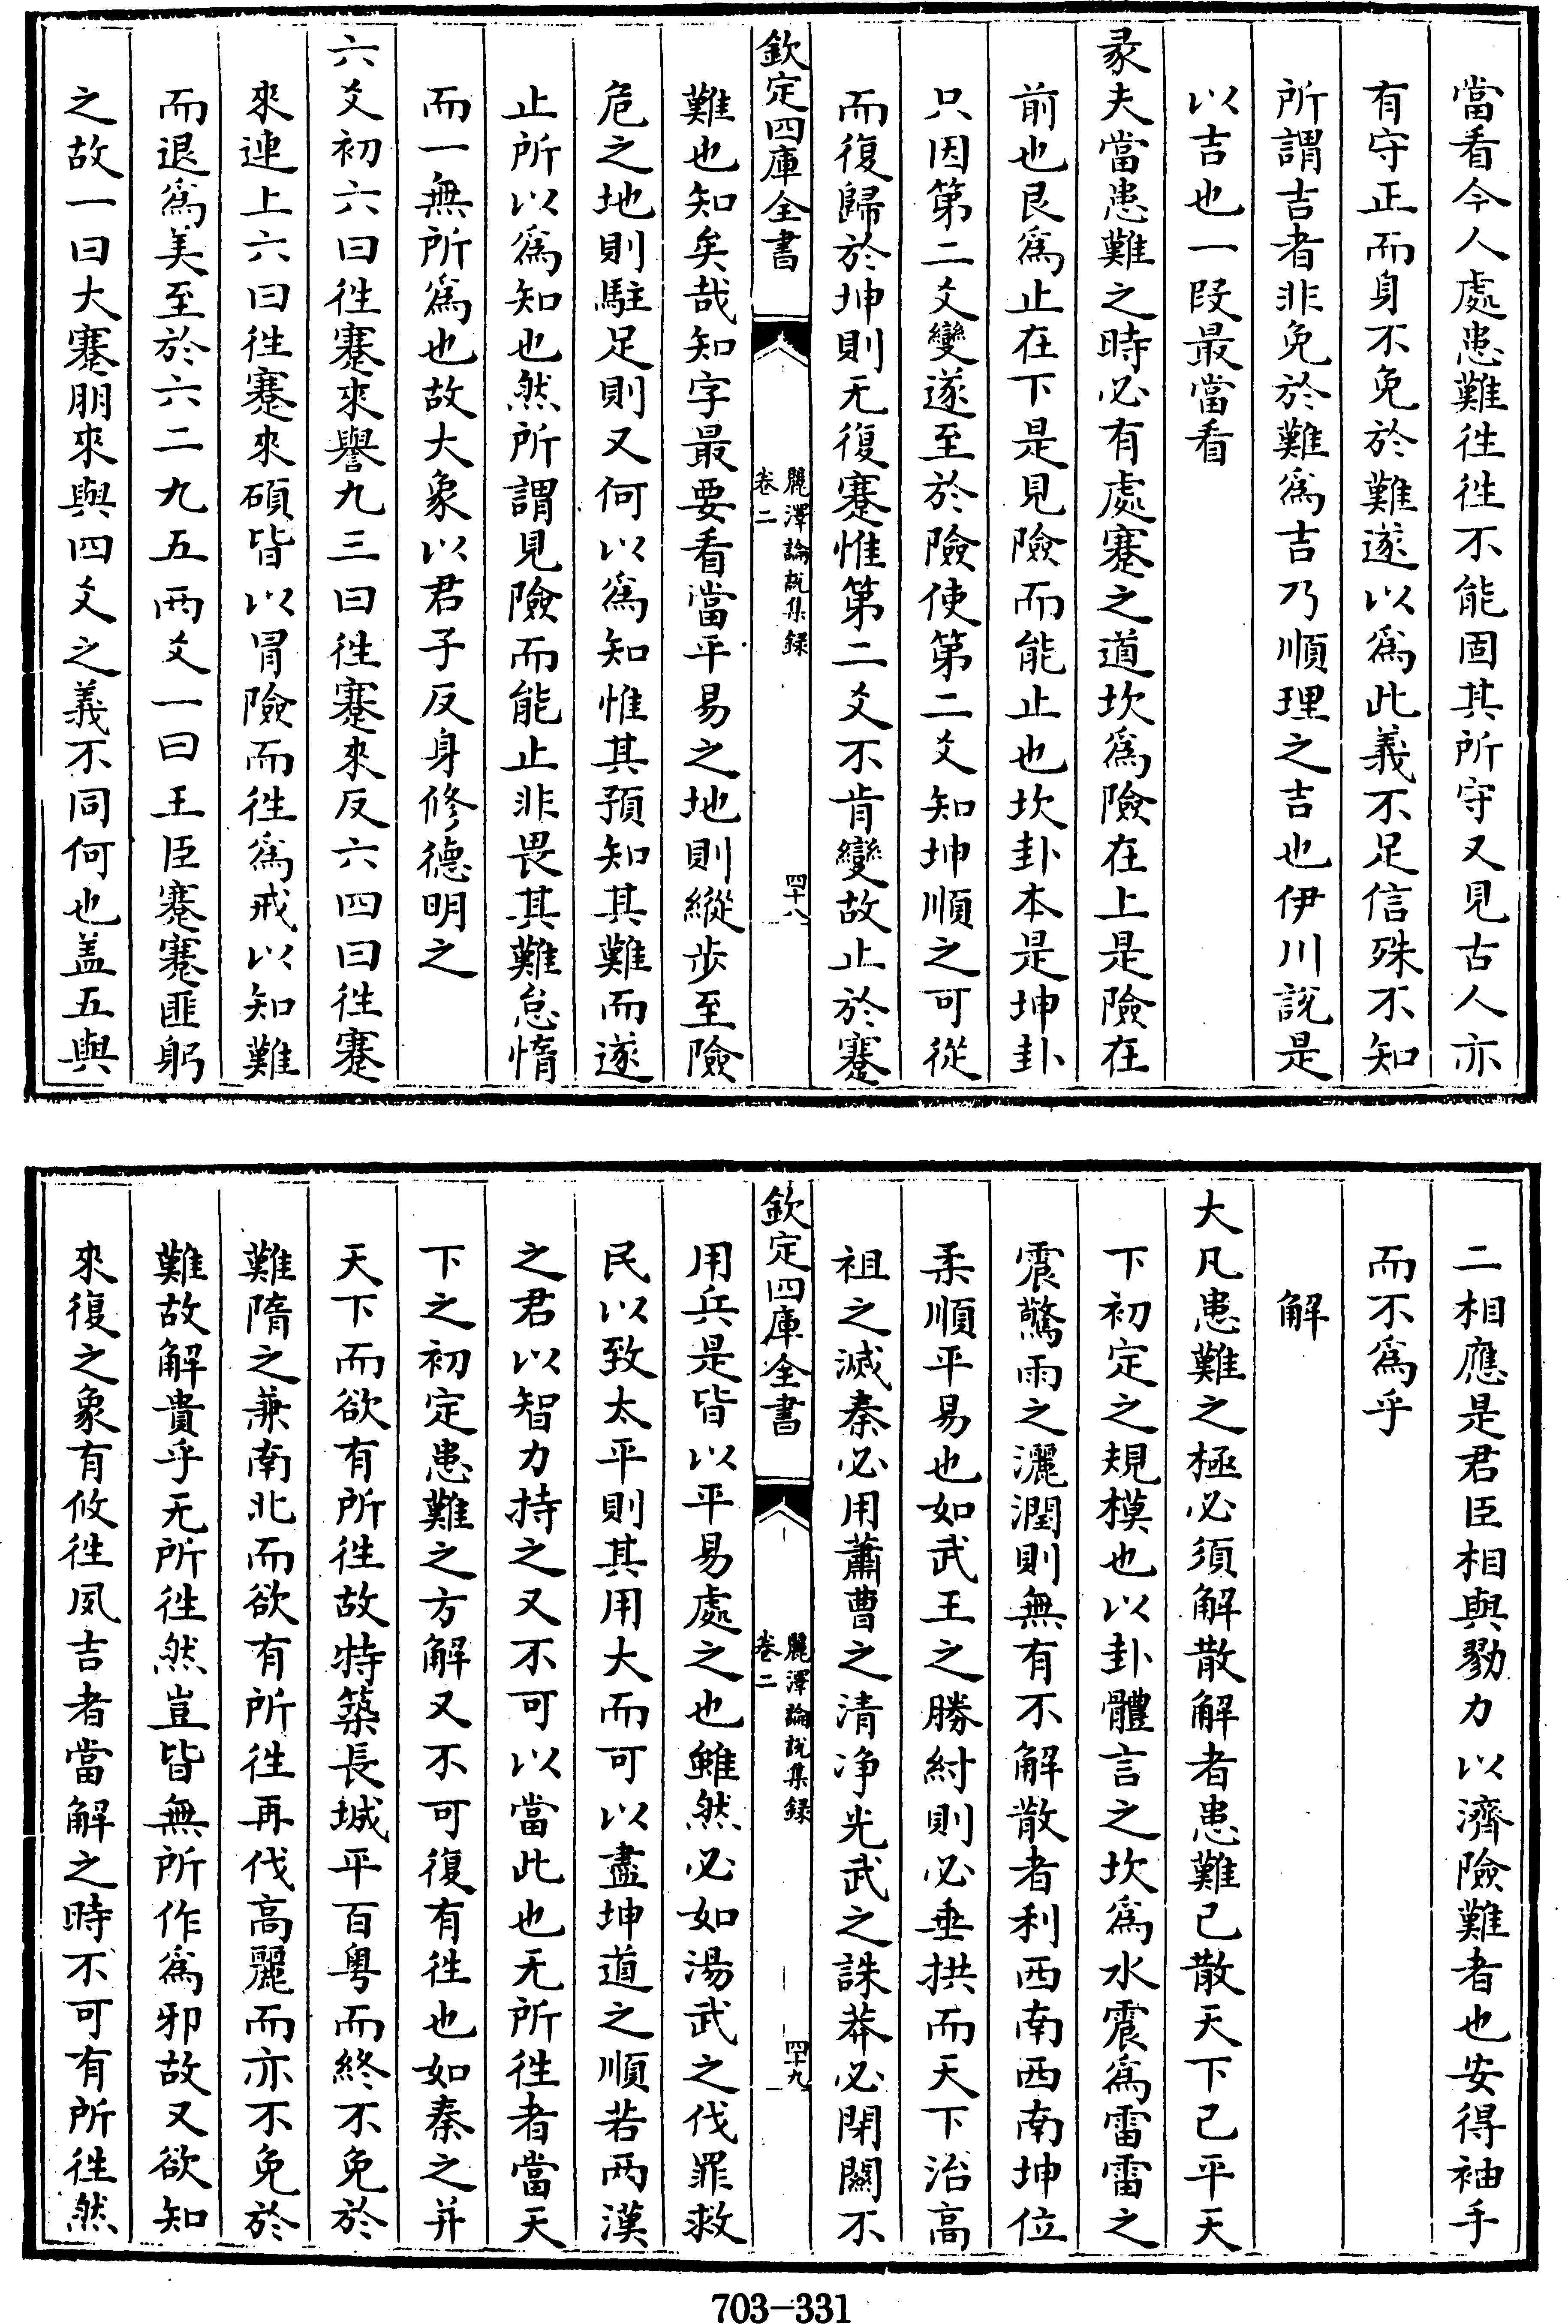 當看今人處患難徃徃不能固其所守又見古人亦
有守正而身不免於難遂以爲此義不足信殊不知
所謂吉者非免於難爲吉乃順理之吉也伊川說是
以吉也一段最當看
彖夫當患難之時必有處蹇之道坎爲險在上是險在
前也艮爲止在下是見險而能止也坎卦本是坤卦
只因第二爻變遂至於險使第二爻知坤順之可從
而復歸於坤則无復蹇惟第二爻不肯變故止於蹇
欽定四庫全書
麗澤論說集録
卷二
四十八
難也知矣哉知字最要看當平易之地則縱步至險
危之地則駐足則又何以爲知惟其預知其難而遂
止所以爲知也然所謂見險而能止非畏其難怠惰
而一無所爲也故大象以君子反身修德明之
六爻初六曰徃蹇來譽九三曰徃蹇來反六四曰徃蹇
來連上六曰徃蹇來碩皆以冒險而徃爲戒以知難
而退爲美至於六二九五兩爻一曰王臣蹇蹇匪躬
之故一曰大蹇朋來與四爻之義不同何也盖五與
二相應是君臣相與勠力以濟險難者也安得袖手
而不爲乎
解
大凡患難之極必須解散解者患難已散天下已平天
下初定之規模也以卦體言之坎爲水震爲雷雷之
震驚雨之灑潤則無有不解散者利西南西南坤位
柔順平易也如武王之勝紂則必垂拱而天下治高
祖之滅秦必用蕭曹之清净光武之誅莽必閉關不
欽定四庫全書
麗澤論說集録
卷二
四十九
用兵是皆以平易處之也雖然必如湯武之伐罪救
民以致太平則其用大而可以盡坤道之順若兩漢
之君以智力持之又不可以當此也无所徃者當天
下之初定患難之方解又不可復有徃也如秦之并
天下而欲有所徃故特築長城平百粤而終不免於
難隋之兼南北而欲有所徃再伐高麗而亦不免於
難故解貴乎无所徃然豈皆無所作爲邪故又欲知
來復之象有攸徃夙吉者當解之時不可有所徃然
703-331